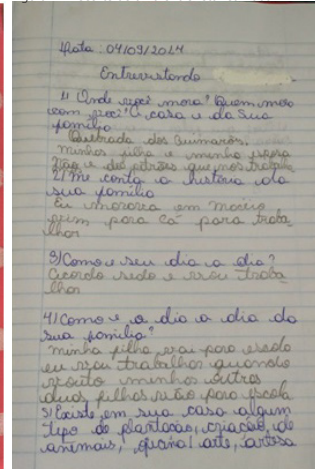 Data: 04/09/2024
Entrevistando
1) Onde você mora? Quem mora
com você? A casa é da sua
família
Quebrada dos Guimarães.
Minhas filha e minha esposa
Não é dos patrões que nos trabalha
2) Me conta a história da
sua família
Eu morava em
vim para cá para traba
lhar
3) Como é seu dia a dia?
Acordo cedo e vou traba
lhar
4) Como é o dia a dia da
sua família?
minha filha vai para escola
eu vou trabalhar quando
volto minhas outras
duas filhas vão para escola
5) Existe em sua casa algum
tipo de plantação, criação de
animais, quais? arte, artesa